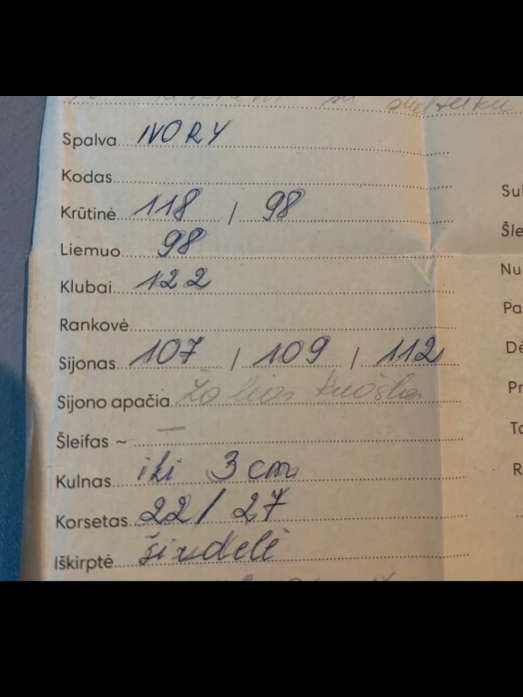 Spalva IVORY
Kodas
Krūtinė 118 / 98
Liemuo 98
Klubai 122
Rankovė
Sijonas 107 / 109 / 112
Sijono apačia
Šleifas ~ —
Kulnas iki 3 cm
Korsetas 22 / 27
Iškirptė širdelė
Su
Šle
Nu
Pa
Dė
Pr
Ta
R